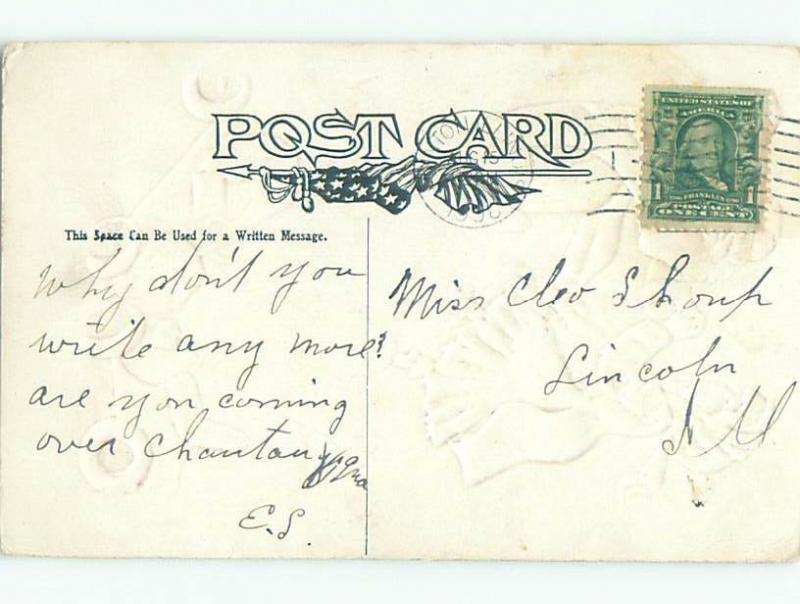 POST CARD
TON
1908
UNITED STATES OF
AMERICA
1 FRANKLIN 1
POSTAGE
ONE CENT
This Space Can Be Used for a Written Message.
Why don't you
write any more?
are you coming
over Chautauqua
E.S.
Miss Cleo Shoup
Lincoln
Ill